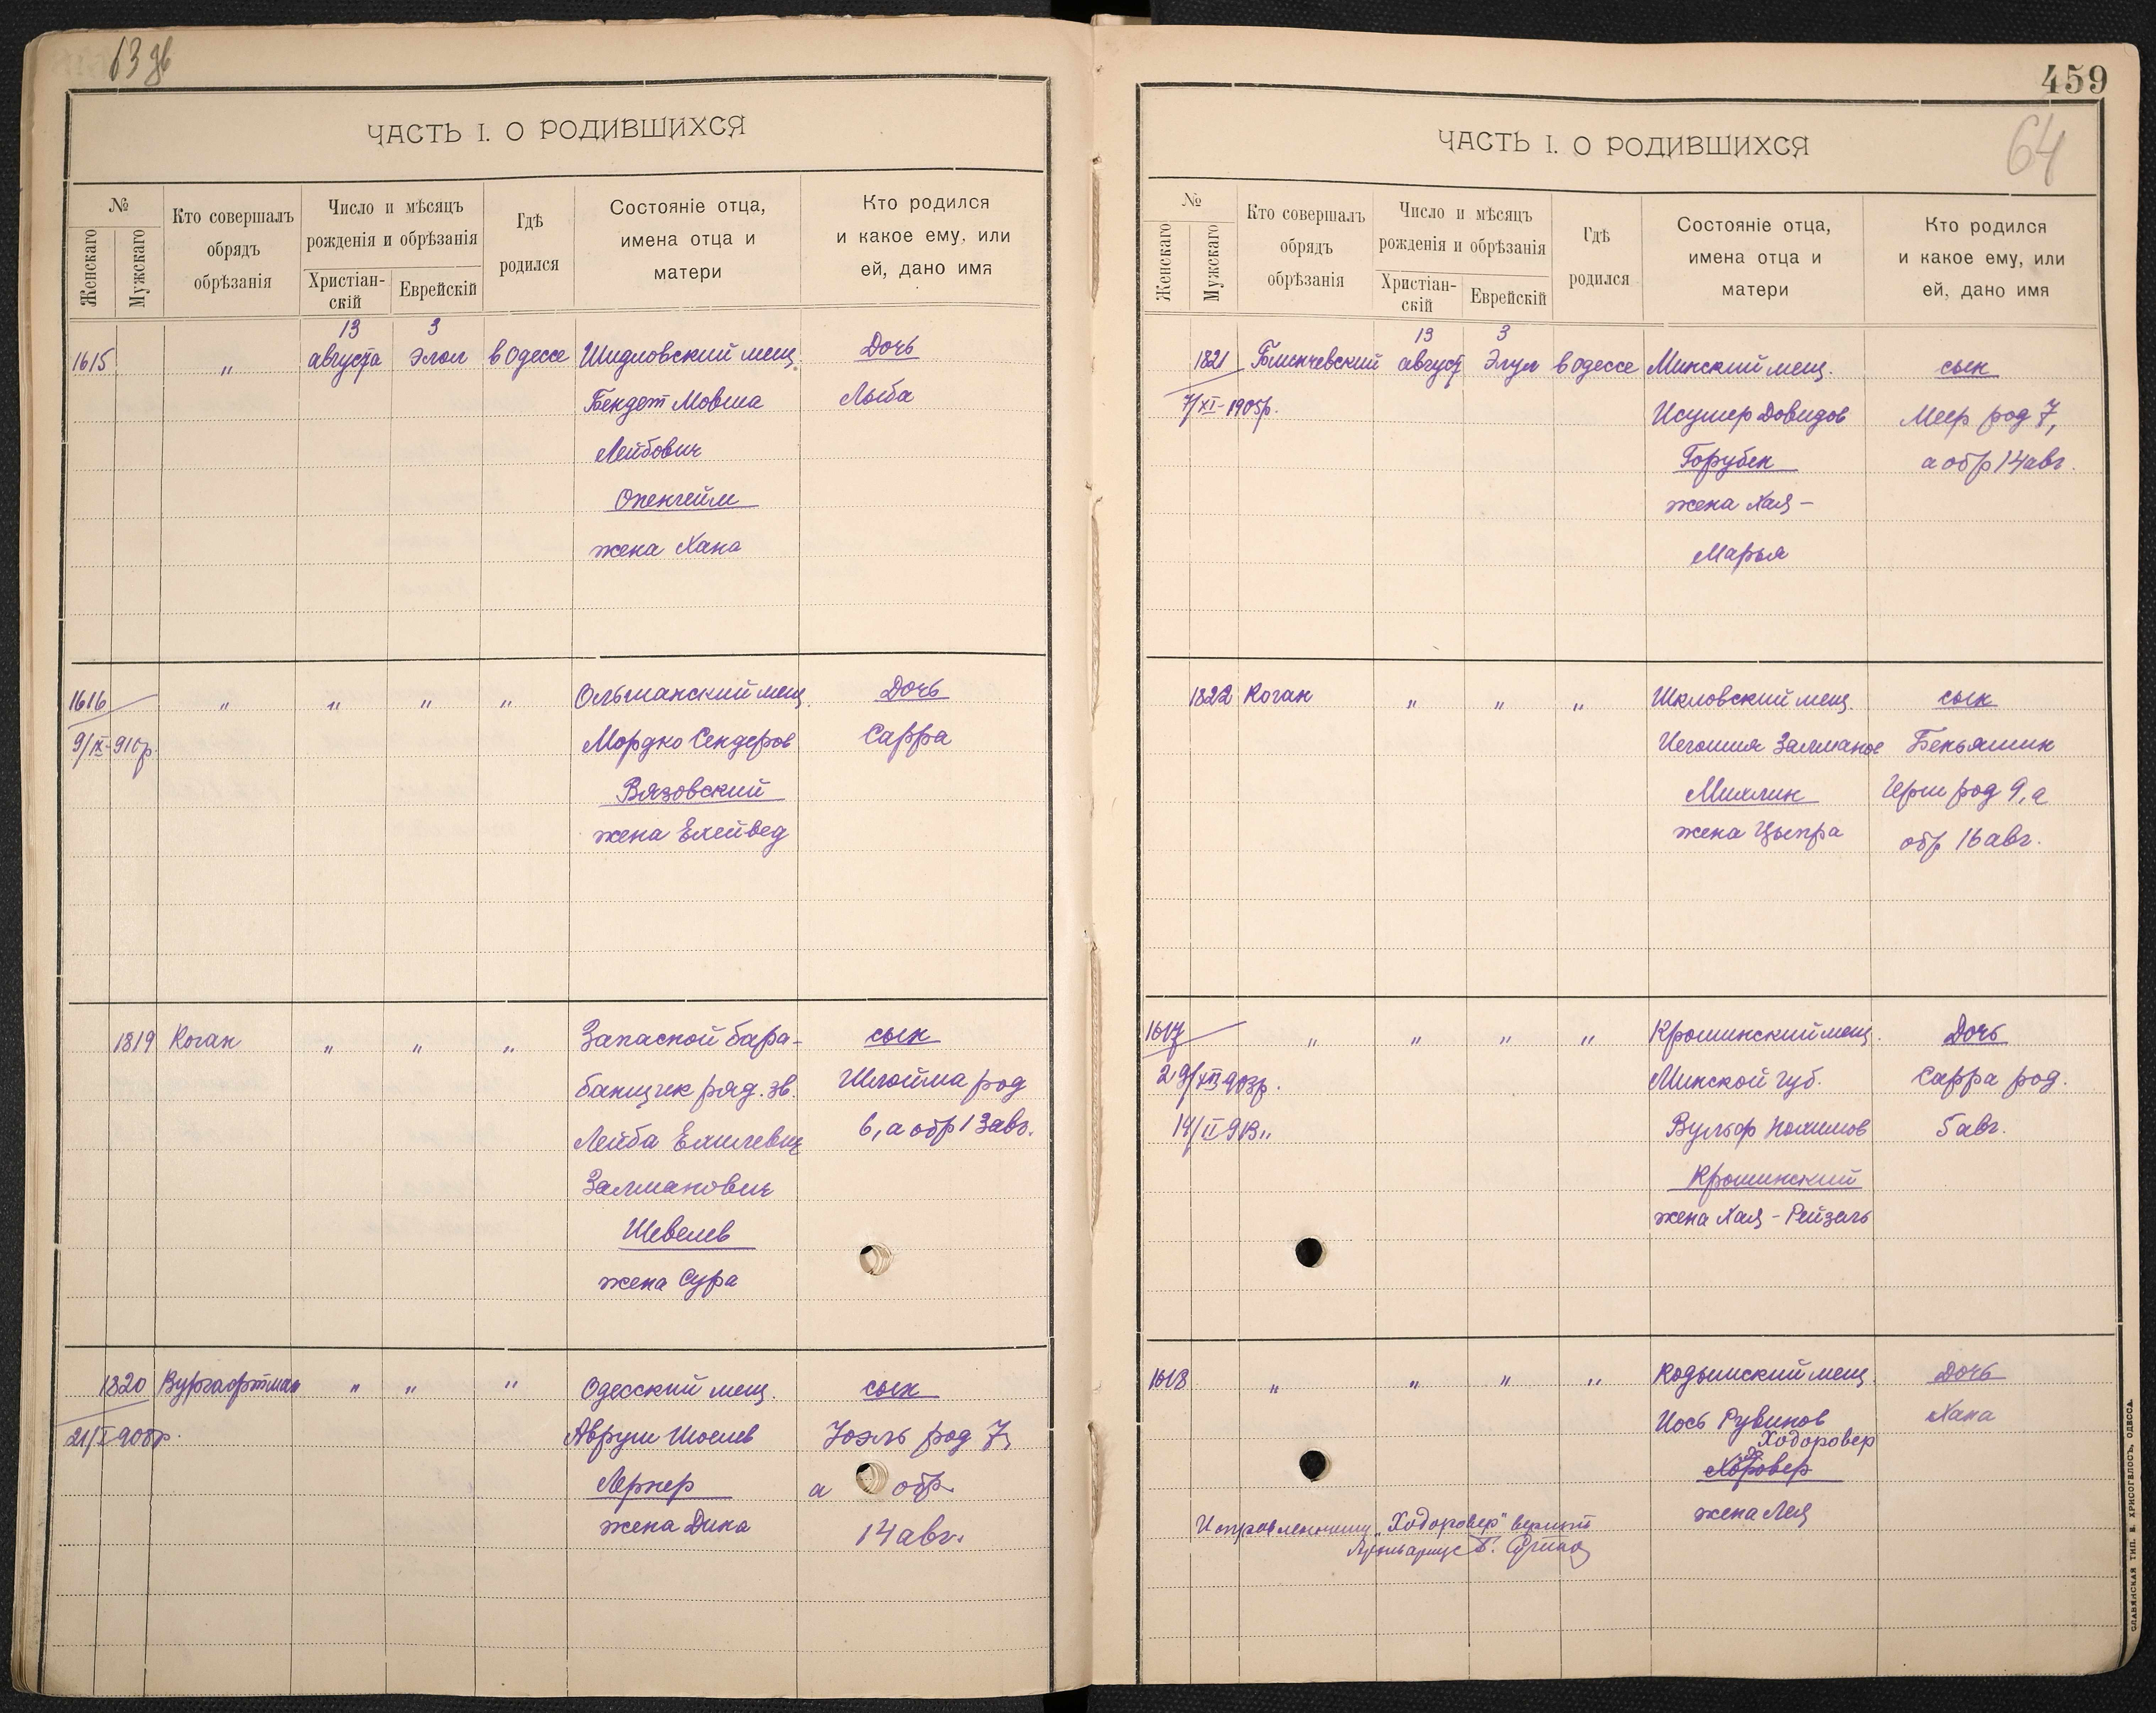 13 дв
ЧАСТЬ I. О РОДИВШИХСЯ
№
Женскаго
Мужскаго
Кто совершалъ
обрядъ
обрѣзанія
Число и мѣсяцъ
рожденія и обрѣзанія
Христіан-
скій
Еврейскій
Гдѣ
родился
Состояніе отца,
имена отца и
матери
Кто родился
и какое ему, или
ей, дано имя
13 3
1615 " августа Элол в Одессе Шидловский мещ. Дочь
Бендет Мовша Лыба
Лейбович
Опенгейм
жена Хана
1616 " " " " Ольшанский мещ. Дочь
9/IX-910р. Мордко Сендеров Сарра
Вязовский
жена Ехейвед
1819 Коган " " " Запасной бара- сын
банщик ряд. зв. Шлойма род
Лейба Ехилевич 6, а обр 13 авг.
Залманович
Шевелев
жена Сура
1820 Вургафтман " " " Одесский мещ. сын
Аврум Шоелев Іоэль род 7,
Лернер а обр
жена Дина 14 авг.
459
64
ЧАСТЬ I. О РОДИВШИХСЯ
№
Женскаго
Мужскаго
Кто совершалъ
обрядъ
обрѣзанія
Число и мѣсяцъ
рожденія и обрѣзанія
Христіан-
скій
Еврейскій
Гдѣ
родился
Состояніе отца,
имена отца и
матери
Кто родился
и какое ему, или
ей, дано имя
13 3
1821 август Элул в Одессе Минский мещ. сын
7/XI-1905р. Довидов Меер род 7,
Горубен а обр 14 авг.
жена Хая-
Марья
1822 Коган " " " Шкловский мещ. сын
Иегошия Залманов Беньямин
Михлин Герш род 9, а
жена Цыпра обр 16 авг.
1617 " " " " Крошинский мещ. Дочь
29/XII-903р. Минской губ. Сарра род.
14/II 913" Вульф Нохимов 5 авг.
Крошинский
жена Хая-Рейзель
1618 " " " " Кодымский мещ. Дочь
Иось Рувинов Хана
Ходоровер
Хоровер
жена Лея
Исправленному „Ходоровер" верить
СЛАВЯНСКАЯ ТИП. В. ХРИСОГЕЛОСЪ, ОДЕССА.